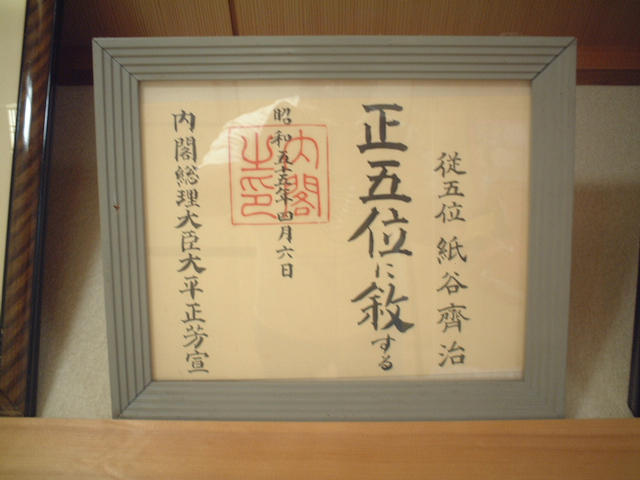 従五位 紙谷齊治
正五位に敘する
昭和五十五年四月六日
内閣之印
内閣総理大臣大平正芳宣